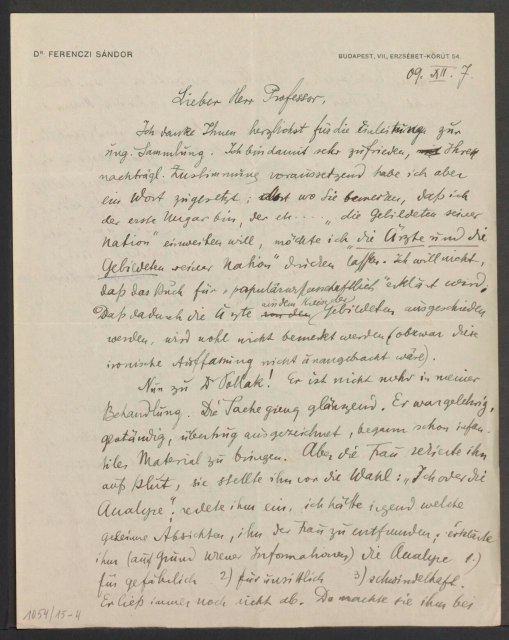 Dr. FERENCZI SÁNDOR
BUDAPEST, VII., ERZSÉBET-KÖRÚT 54.
09. XII. 7.
Lieber Herr Professor,
Ich danke Ihnen herzlichst für die Einleitung zur
ung. Sammlung. Ich bin damit sehr zufrieden, Ihre
nachträgl. Zustimmung voraussetzend habe ich aber
ein Wort zugesetzt; dort wo Sie bemerken, daß ich
der erste Ungar bin, der etc... „die Gebildeten seiner
Nation" einweihen will, möchte ich „die Ärzte und die
Gebildeten seiner Nation" drucken lassen. Ich will nicht,
daß das Buch für „populärwissenschaftlich" erklärt werde.
Daß dadurch die Ärzte aus dem Kreise der Gebildeten ausgeschieden
werden, wird wohl nicht bemerkt werden (obzwar diese
ironische Auffassung nicht unangebracht wäre).
Nun zu Dr Pollak! Er ist nicht mehr in meiner
Behandlung. Die Sache gieng glänzend. Er war gelehrig,
geständig, übertrug ausgezeichnet, begann schon infan-
tiles Material zu bringen. Aber die Frau sekierte ihn
aufs Blut, sie stellte ihn vor die Wahl: „Ich oder die
Analyse", redete ihm ein, ich hätte irgend welche
geheime Absichten, ihn der Frau zu entfremden, erklärte
ihm (auf Grund Wiener Informationen) die Analyse 1.)
für gefährlich 2) für unsittlich 3) schwindelhaft.
Er ließ immer noch nicht ab. Da machte sie ihm bei
1054/15-4